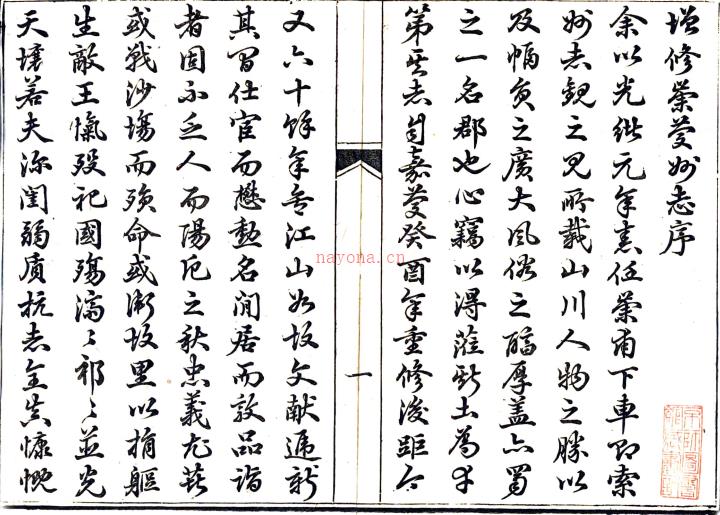 增修崇慶州志序
余以光緒元年任崇甫下車即索
州志觀之見所載山川人物之勝以
及幅員之廣大風俗之醇厚蓋亦蜀
之一名郡也心竊以得蒞斯土為幸
第其志自嘉慶癸酉年重修後距今
一
又六十餘年矣江山如故文獻遞新
其間仕宦而懋勳名閒居而敦品詣
者固不乏人而陽厄之秋忠義尤
或戰沙場而殞命或衛故里以捐軀
生敵王愾歿祀國殤濟〻祁〻並光
天壤若夫深閨弱質抗志全貞慷慨
nayona.cn